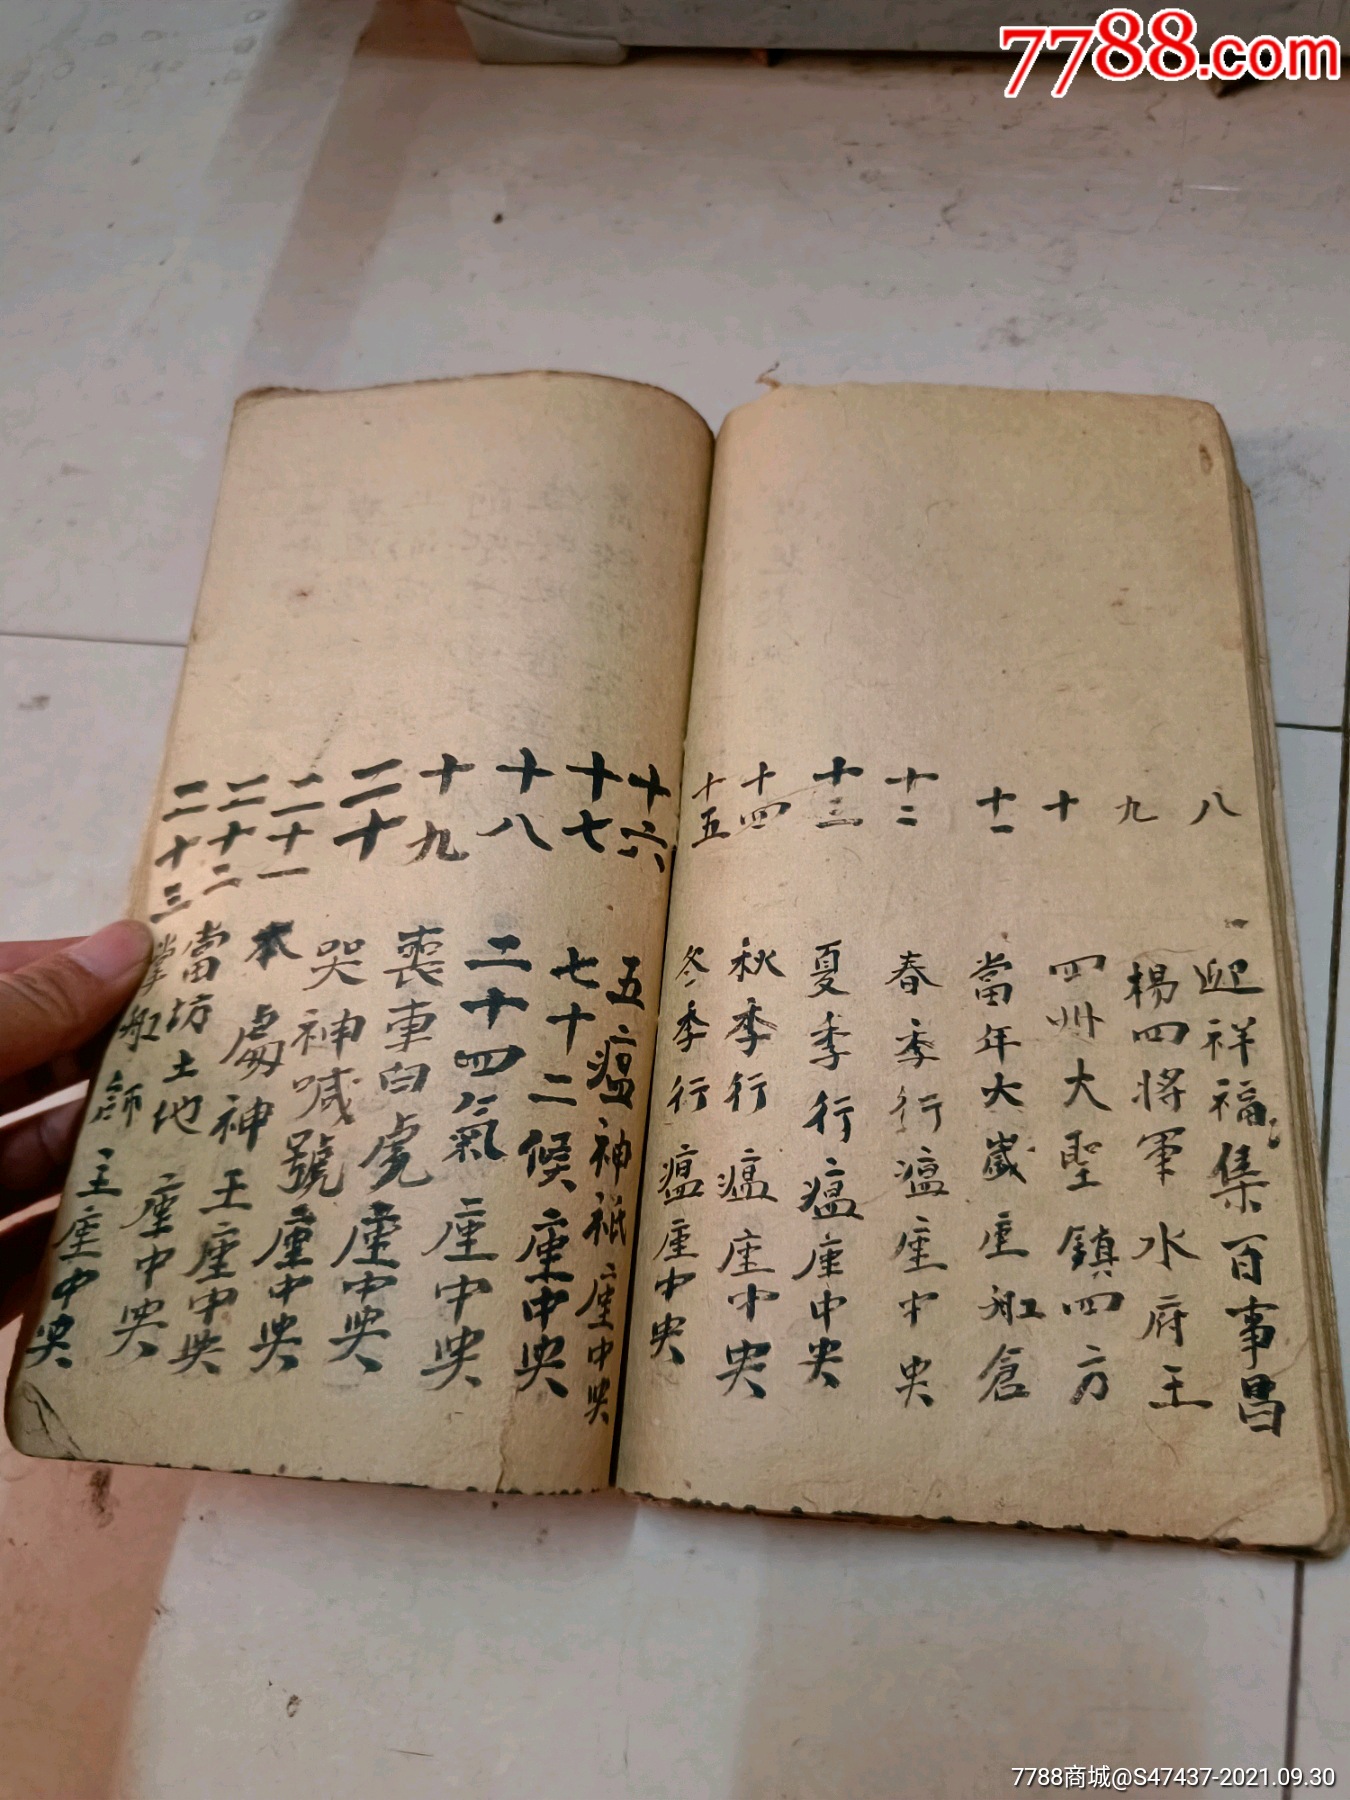 7788.com
八 迎祥福集百事昌
九 楊四將軍水府王
十 四州大聖鎮四方
十一 當年大歲座舡倉
十二 春季行瘟座中央
十三 夏季行瘟座中央
十四 秋季行瘟座中央
十五 冬季行瘟座中央
十六 五瘟神祇座中央
十七 七十二候座中央
十八 二十四氣座中央
十九 喪車白虎座中央
二十 哭神喊號座中央
二十一 本處神王座中央
二十二 當坊土地座中央
二十三 掌舡師主座中央
7788商城@S47437-2021.09.30